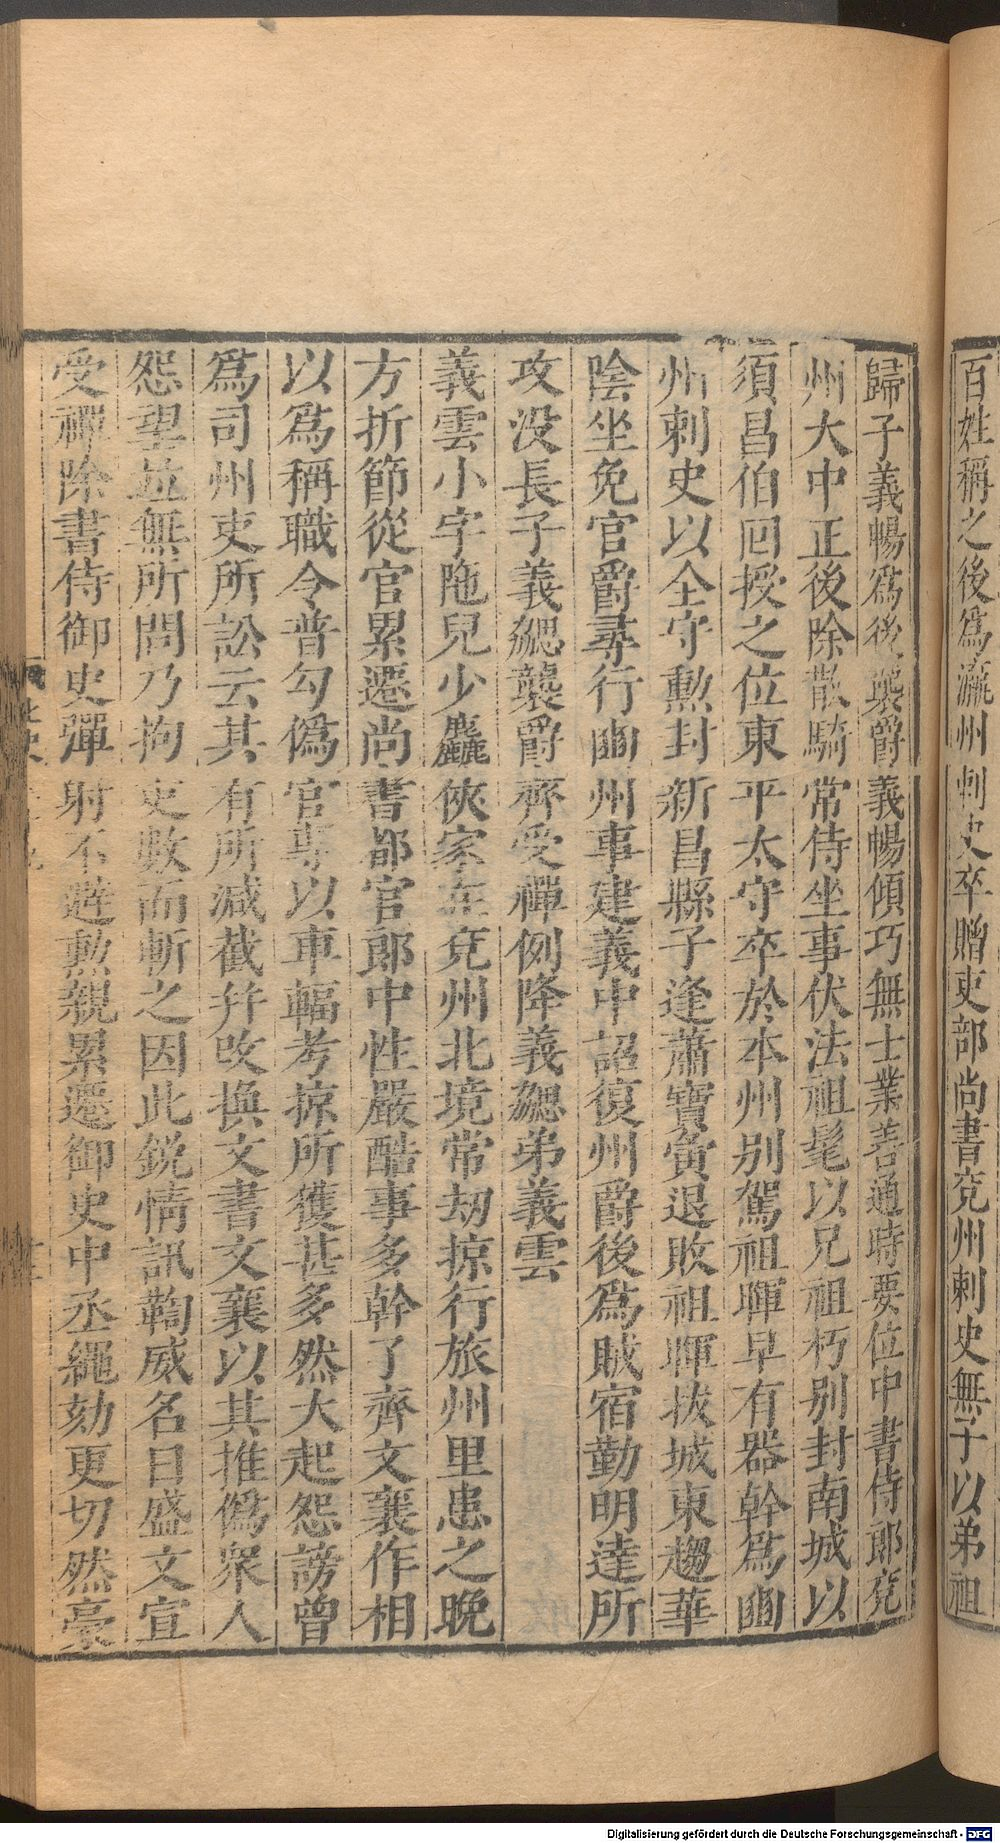 百姓稱之後爲瀛州刺史卒贈吏部尚書兖州刺史無子以弟祖
歸子義暢爲後襲爵義暢傾巧無士業善通時要位中書侍郎兖
州大中正後除散騎常侍坐事伏法祖髦以兄祖朽别封南城以
須昌伯回授之位東平太守卒於本州别駕祖暉早有器幹爲豳
州刺史以全守勲封新昌縣子逢蕭寳夤退敗祖暉拔城東趨華
陰坐免官爵尋行豳州事建義中詔復州爵後爲賊宿勤明達所
攻没長子義勰襲爵齊受禪例降義勰弟義雲
義雲小字陁兒少麤俠家在兖州北境常刼掠行旅州里患之晚
方折節從官累遷尚書都官郎中性嚴酷事多幹了齊文襄作相
以爲稱職令普勾僞官專以車輻考掠所獲甚多然大起怨謗曾
爲司州吏所訟云其有所減截并改換文書文襄以其推僞衆人
怨望並無所問乃拘吏數而斬之因此鋭情訊鞫威名日盛文宣
受禪除書侍御史彈射不避勲親累遷御史中丞繩劾更切然豪
Digitalisierung gefördert durch die Deutsche Forschungsgemeinschaft - DFG